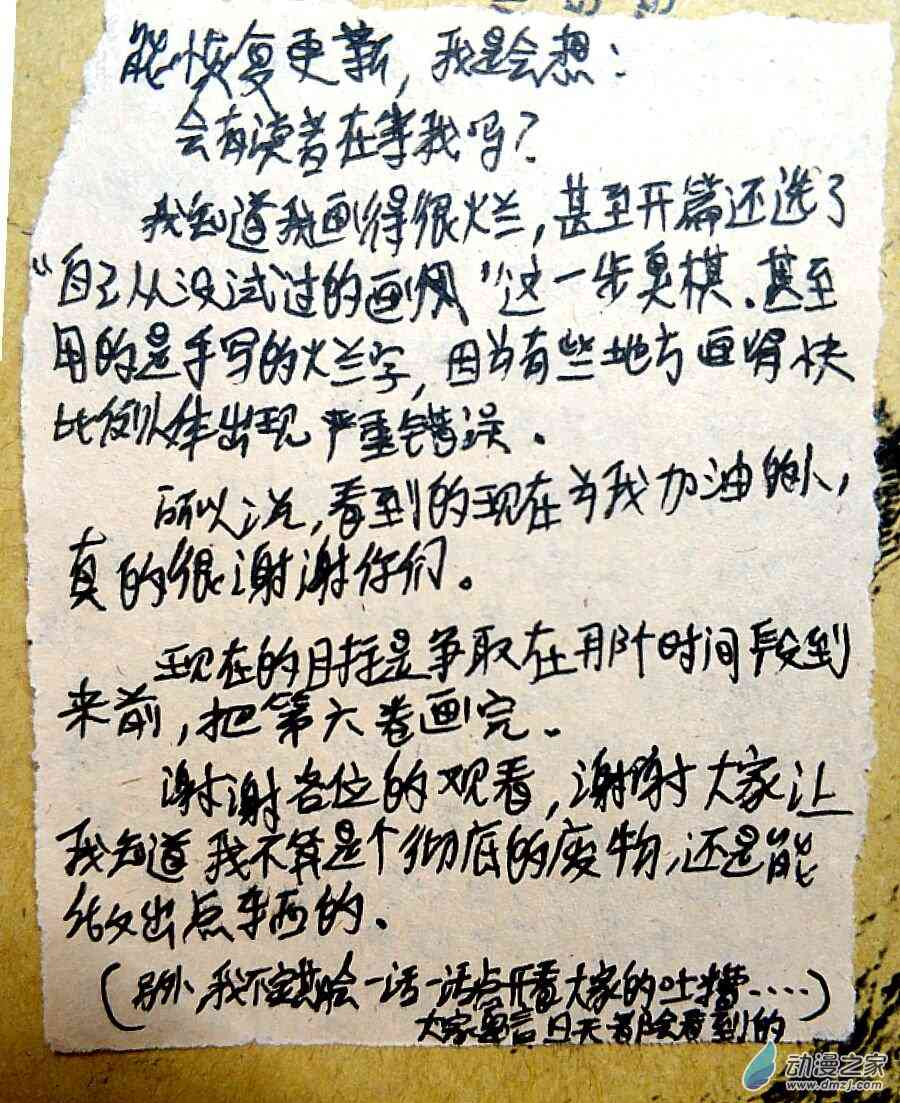 能恢复更新，我是会想：
会有读者在等我吗？
我知道我画得很烂，甚至开篇还选了
“自己从没试过的画风”这一步臭棋、甚至
用的是手写的烂字，因为有些地方画得快
比例人体出现严重错误。
所以说，看到的现在为我加油的小，
真的很谢谢你们。
现在的目标是争取在那个时间段到
来前，把第六卷画完。
谢谢各位的观看，谢谢大家让
我知道我不算是个彻底的废物，还是能
做出点东西的、
（另外、我不定期会一话一话点开看大家的吐槽……）
大家留言 都会看到的
动漫之家
www.dmzj.com